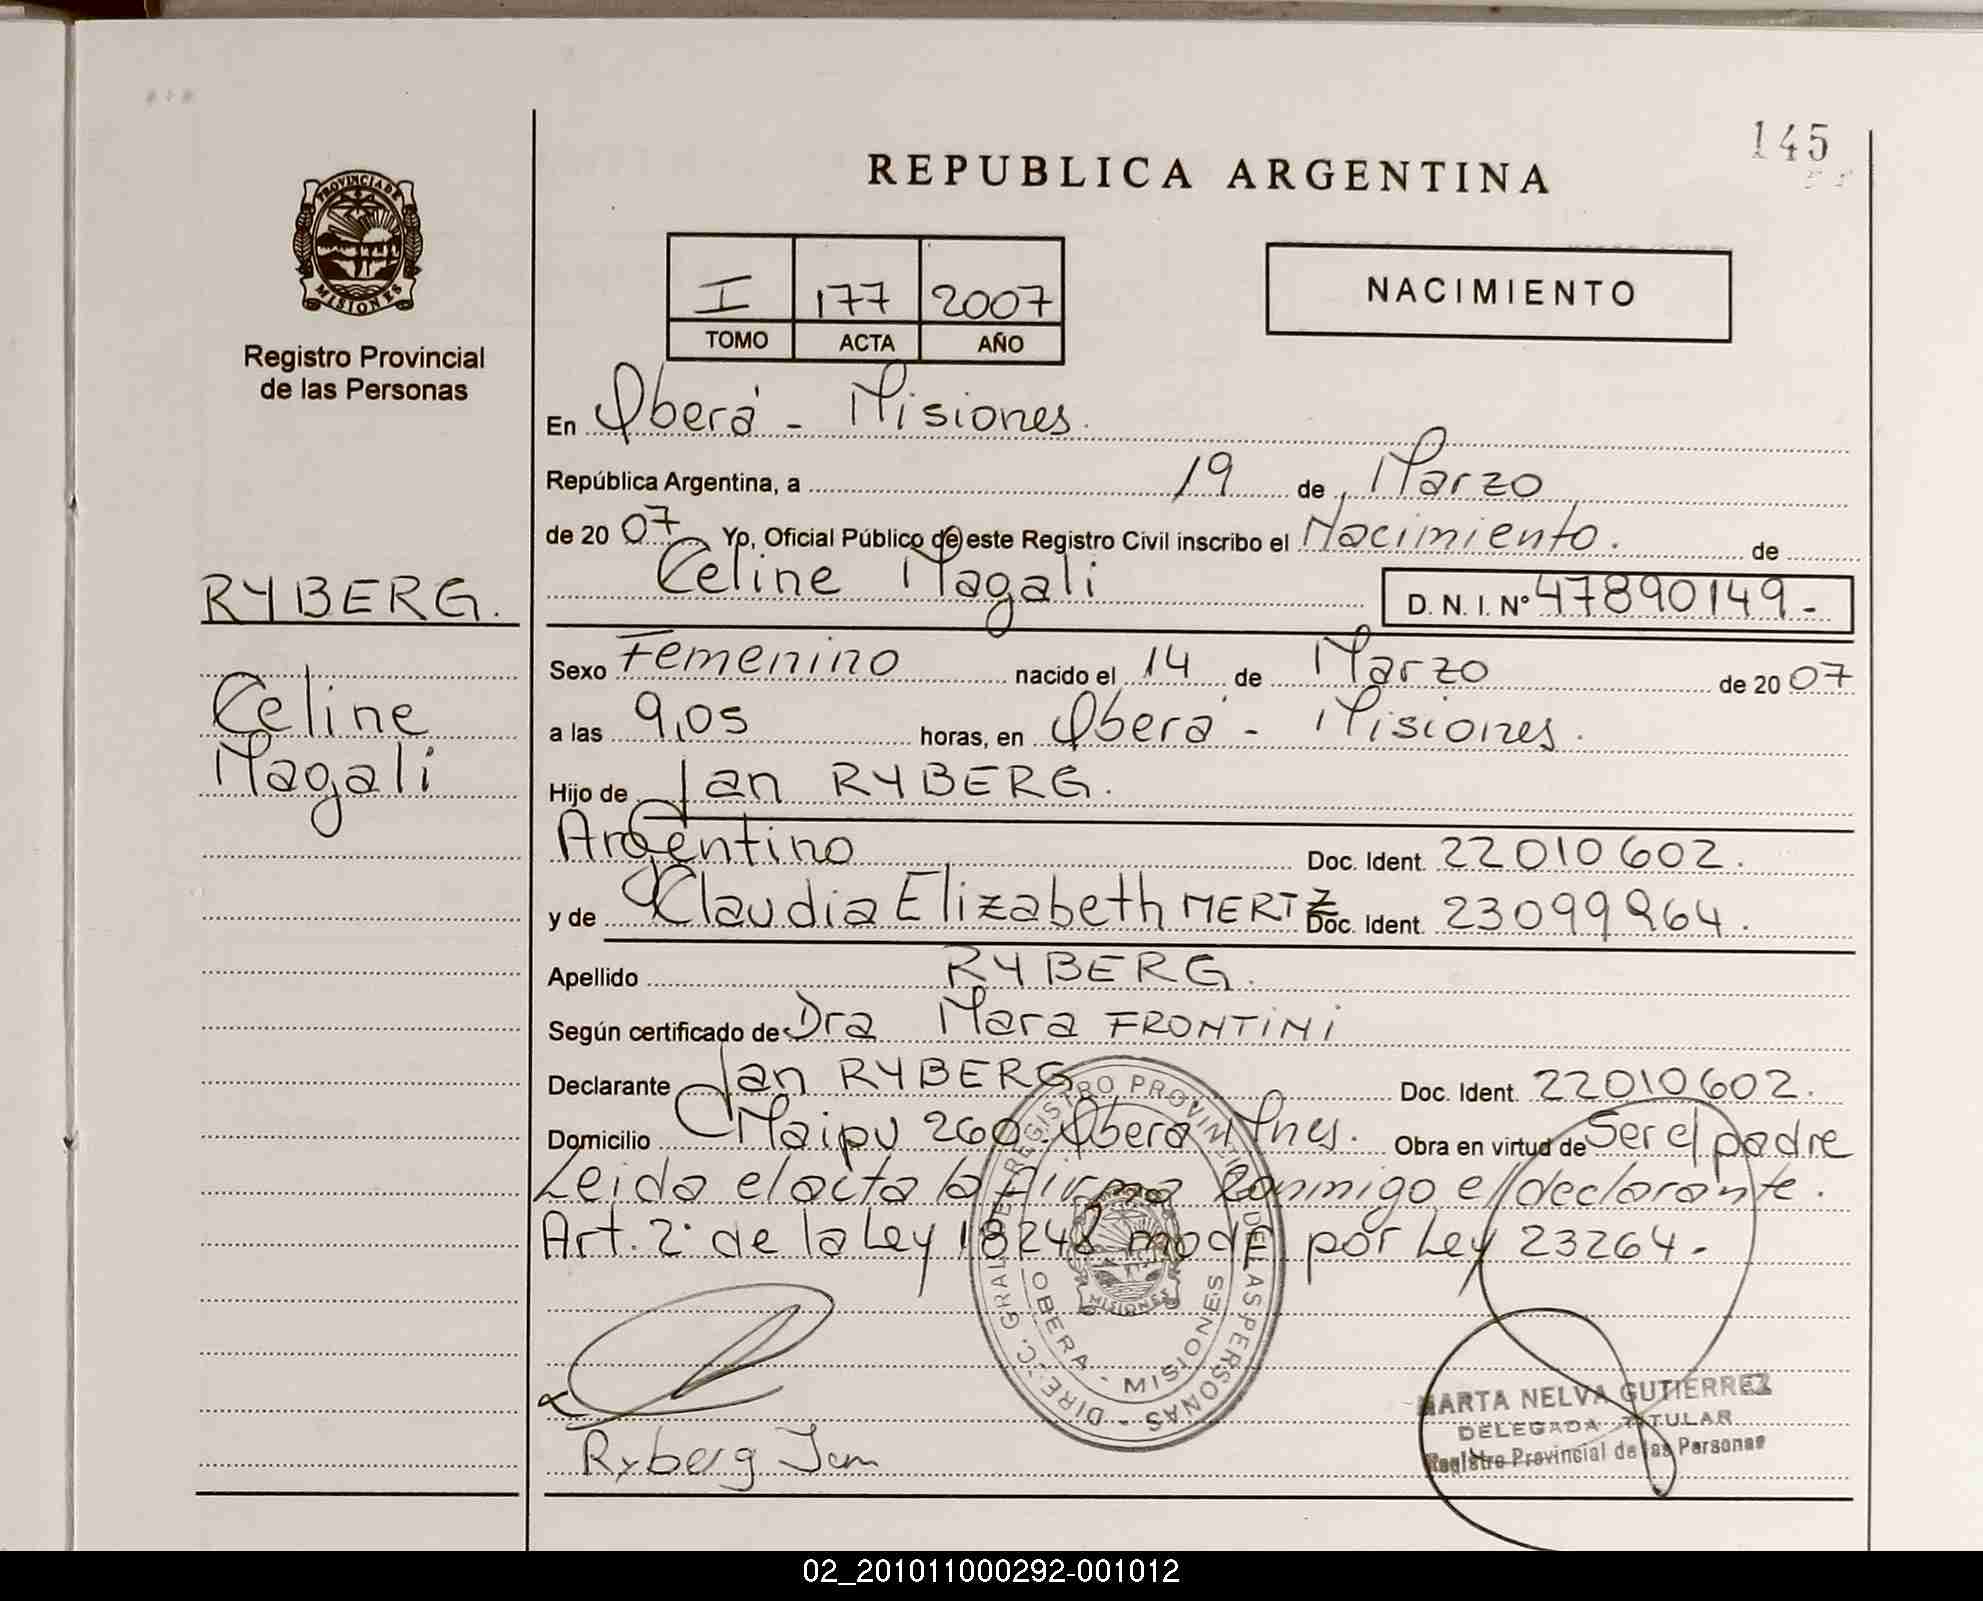 145
REPUBLICA ARGENTINA
PROVINCIA DE
MISIONES
Registro Provincial
de las Personas
I 177 2007
TOMO ACTA AÑO
NACIMIENTO
RYBERG.
Celine
Magali
En Oberá - Misiones.
República Argentina, a 19 de Marzo
de 2007 Yo, Oficial Público de este Registro Civil inscribo el Nacimiento. de
Celine Magali D. N. I. Nº 47890149.-
Sexo Femenino nacido el 14 de Marzo de 2007
a las 9,05 horas, en Oberá - Misiones.
Hijo de Jan RYBERG.
Argentino Doc. Ident. 22010602.
y de Claudia Elizabeth MERTZ Doc. Ident. 23099264.
Apellido RYBERG.
Según certificado de Dra Mara FRONTINI
Declarante Jan RYBERG Doc. Ident. 22010602.
Domicilio Maipu 260. Oberá Mnes. Obra en virtud de Ser el padre
Leida el acta la firma Conmigo el declarante.
Art. 2º de la Ley 18248 modf por Ley 23264.-
DIREC. GRAL. DEL REGISTRO PROVINCIAL DE LAS PERSONAS
OBERA - MISIONES
MISIONES
Ryberg Jan
MARTA NELVA GUTIERREZ
DELEGADA TITULAR
Registro Provincial de las Personas
02_201011000292-001012